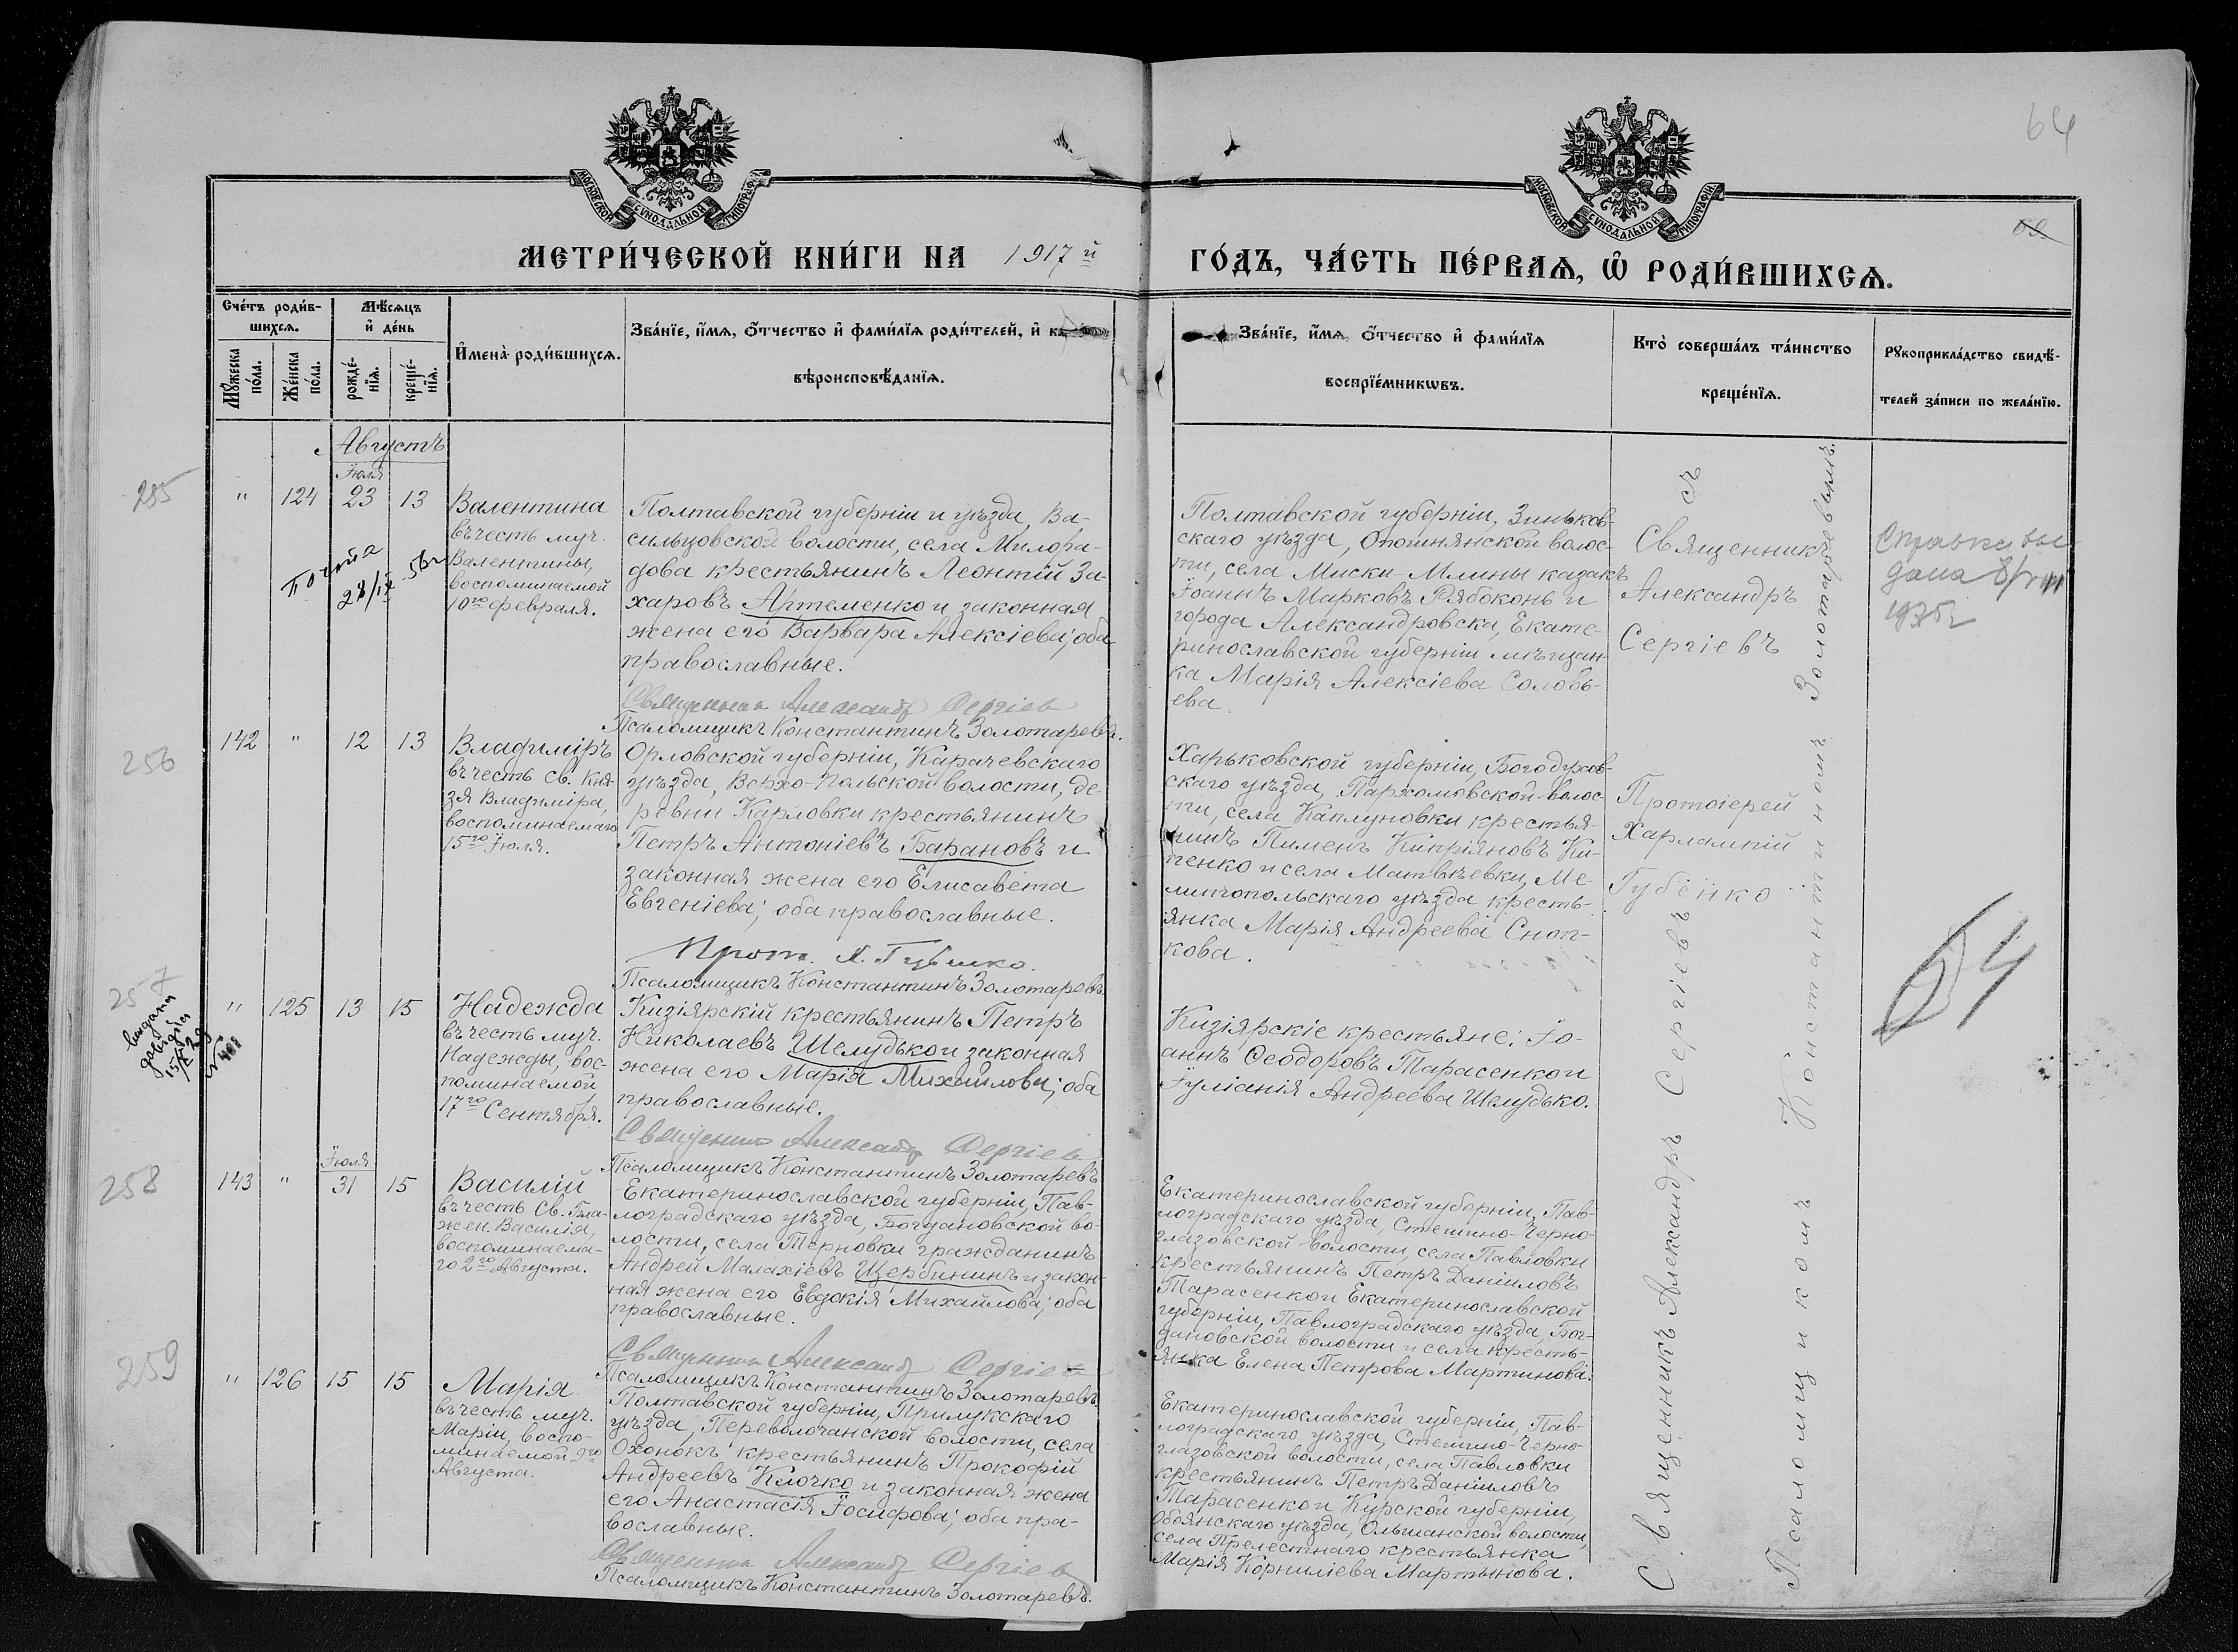 64
69.
МОСКОВСКОЙ СѴНОДАЛЬНОЙ ТИПОГРАФІИ
МОСКОВСКОЙ СѴНОДАЛЬНОЙ ТИПОГРАФІИ
МЕТРИ́ЧЕСКОЙ КНИ́ГИ НА 1917 й
ГО́ДЪ, ЧА́СТЬ ПЕ́РВАѦ, Ѡ РОДИ́ВШИХСѦ.
Сче́тъ роди́в-
шихсѧ.
Мꙋ́жеска
по́ла.
Же́нска
по́ла.
Мѣ́сѧцъ
и҆ де́нь
рожде́-
нїѧ.
креще́-
нїѧ.
И҆мена̀ роди́вшихсѧ.
Зва́нїе, и҆́мѧ, ѻ҆́тчество и҆ фами́лїѧ роди́телей, и҆
вѣроисповѣ́данїѧ.
Зва́нїе, и҆́мѧ, ѻ҆́тчество и҆ фами́лїѧ
воспрїе́мникѡвъ.
Кто̀ соверша́лъ та́инство
креще́нїѧ.
Рꙋкоприкла́дство свидѣ́-
телей за́писи по жела́нїю.
Августъ
Іюля
285
" 124 23 13
Валентина
въ честь муч.
Валентины,
воспоминаемой
10го февраля.
28/IX
Полтавской губерніи и уѣзда, Ва-
сильцовской волости, села Милора-
дова крестьянинъ Леонтій За-
харовъ Артеменко и законная
жена его Варвара Алексіева; оба
православные.
Священникъ Александр Сергіев
Псаломщикъ Константинъ Золотаревъ.
Полтавской губерніи, Зиньков-
скаго уѣзда, Опошнянской волос-
ти, села Миски-Млины казакъ
Іоаннъ Марковъ Рябоконь и
города Александровска, Екате-
ринославской губерніи мѣщан-
ка Марія Алексіева Соловь-
ева.
Священникъ
Александръ
Сергіевъ
Справка вы-
дана 8/VIII
1935г
256
142 " 12 13
Владиміръ
въ честь Св. Кня-
зя Владиміра,
воспоминаемаго
15го Іюля.
Орловской губерніи, Карачевскаго
уѣзда, Верхо-Польской волости, де-
ревни Карловки крестьянинъ
Петръ Антоніевъ Барановъ и
законная жена его Елисавета
Евгеніева; оба православные.
Прот. Х. Губенко.
Псаломщикъ Константинъ Золотаревъ.
Харьковской губерніи, Богодухов-
скаго уѣзда, Пархомовской волос-
ти, села Каплуновки крестья-
нинъ Пименъ Кипріяновъ Ки-
пенко и села Матвѣевки, Ме-
литопольскаго уѣзда кресть-
янка Марія Андреева Сноп-
кова.
Протоіерей
Харлампій
Губенко
257
" 125 13 15
Надежда
въ честь муч.
Надежды, вос-
поминаемой
17го Сентября.
Кизіярскій крестьянинъ Петръ
Николаевъ Шелудько и законная
жена его Марія Михайлова; оба
православные.
Священникъ Александр Сергіев
Псаломщикъ Константинъ Золотаревъ
Кизіярскіе крестьяне: Іо-
аннъ Ѳеодоровъ Тарасенко и
Іуліанія Андреева Шелудько.
64
258
Іюля
143 " 31 15
Василій
въ честь Св. Бла-
жен. Василія,
воспоминаема-
го 2го Августа.
Екатеринославской губерніи, Пав-
лоградскаго уѣзда, Богдановской во-
лости, села Терновки гражданинъ
Андрей Малахіевъ Щербининъ и закон-
ная жена его Евдокія Михайлова; оба
православные.
Священникъ Александр Сергіев
Псаломщикъ Константинъ Золотаревъ.
Екатеринославской губерніи, Пав-
лоградскаго уѣзда, Степино-Черно-
глазовской волости, села Павловки
крестьянинъ Петръ Даніиловъ
Тарасенко и Екатеринославской
губерніи, Павлоградскаго уѣзда, Бог-
дановской волости и села кресть-
янка Елена Петрова Мартинова.
259
" 126 15 15
Марія
въ честь муч.
Маріи, воспо-
минаемой 9го
Августа.
Полтавской губерніи, Прилукскаго
уѣзда, Переволочанской волости, села
Охонокъ крестьянинъ Прокофій
Андреевъ Клочко и законная жена
его Анастасія Іосифова; оба пра-
вославные.
Священникъ Александр Сергіев
Псаломщикъ Константинъ Золотаревъ.
Екатеринославской губерніи, Пав-
лоградскаго уѣзда, Степино-Черно-
глазовской волости, села Павловки
крестьянинъ Петръ Даніиловъ
Тарасенко и Курской губерніи,
Обоянскаго уѣзда, Ольшанской волости,
села Прелестнаго крестьянка
Марія Корниліева Мартынова.
Священникъ Александръ Сергіевъ съ
Псаломщикомъ Константиномъ Золотаревымъ.